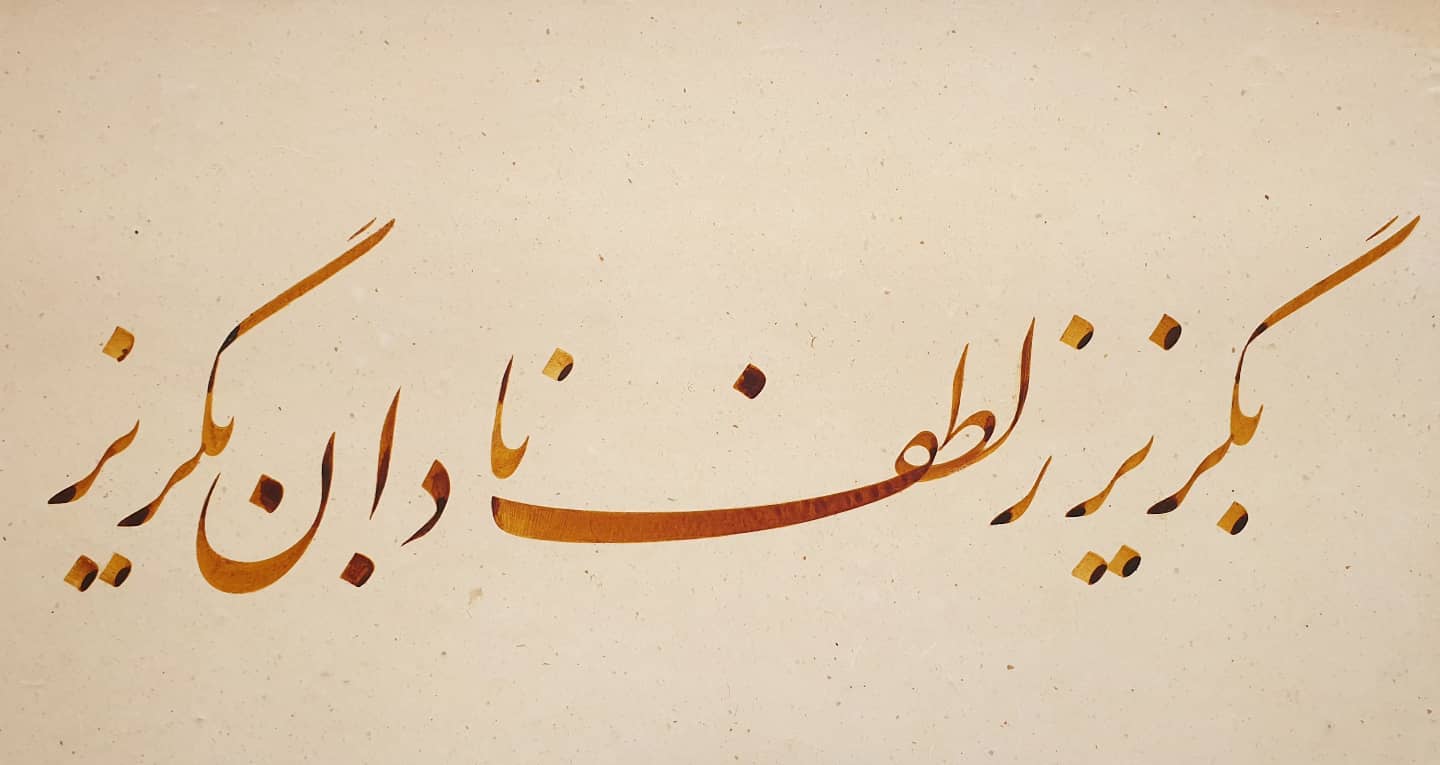 بگریز ز لطف نادان بگریز